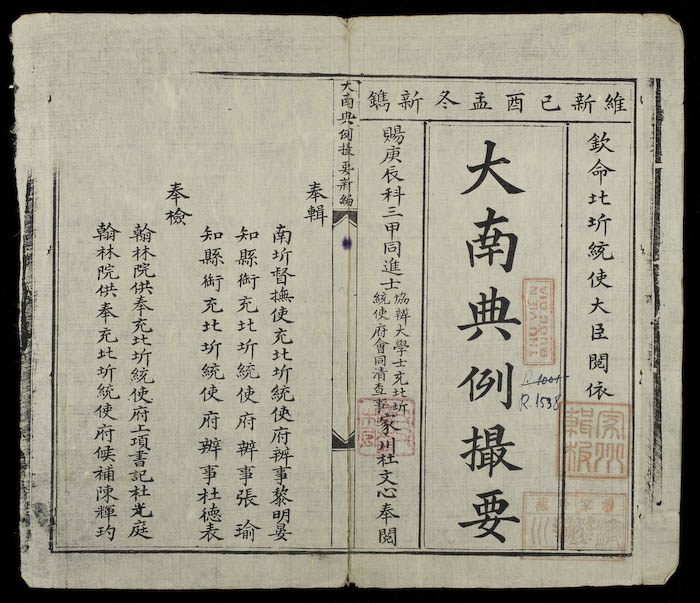 維新己酉孟冬新鐫
欽命北圻統使大臣閱依
大南典例撮要
賜庚辰科三甲同進士協辦大學士充北圻
統使府會同清查事家川杜文心奉閱
大南典例撮要新編
奉輯
南圻督撫使充北圻統使府辦事黎明晏
知縣銜充北圻統使府辦事張瑜
知縣銜充北圻統使府辦事杜德表
奉檢
翰林院供奉充北圻統使府上項書記杜光庭
翰林院供奉充北圻統使府候補陳輝玓
THU VIEN
QUOC GIA
R.1538